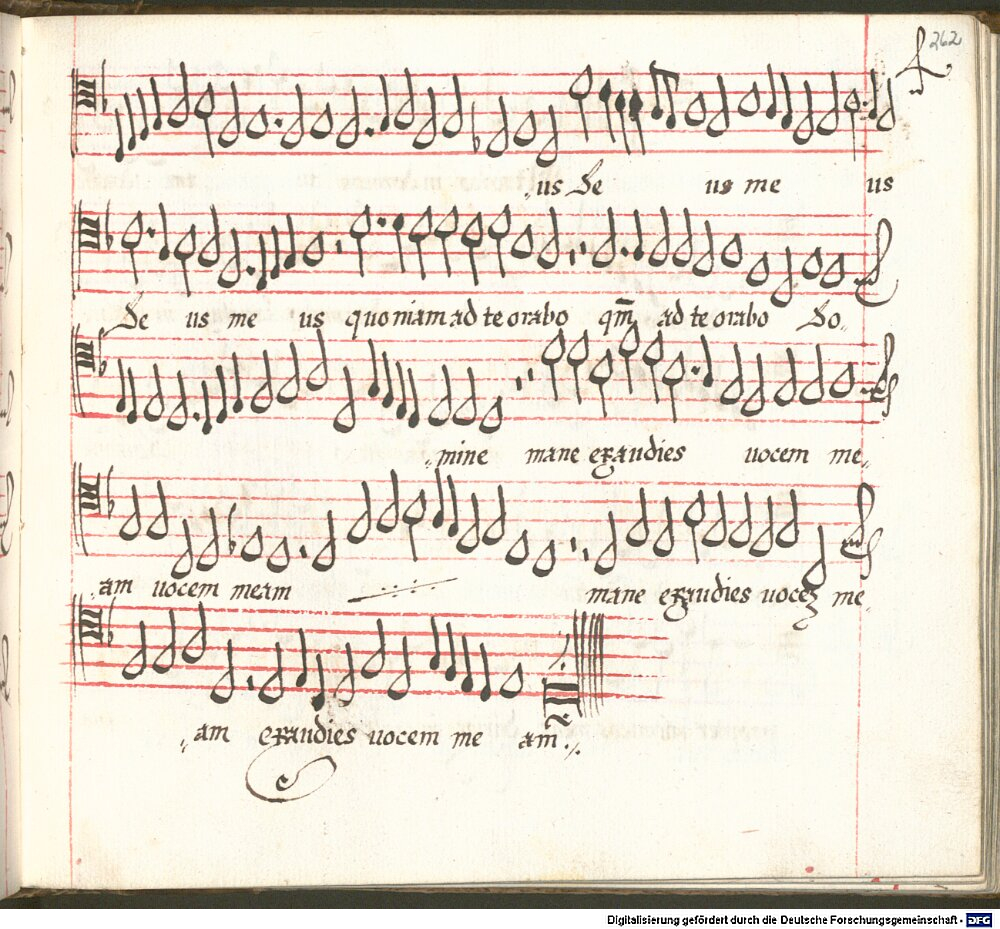 262
us De us me us
De us me us quoniam ad te orabo qm̃ ad te orabo Do
mine mane exaudies uocem me
am uocem meam mane exaudies uocem me
am exaudies uocem me am
Digitalisierung gefördert durch die Deutsche Forschungsgemeinschaft - DFG